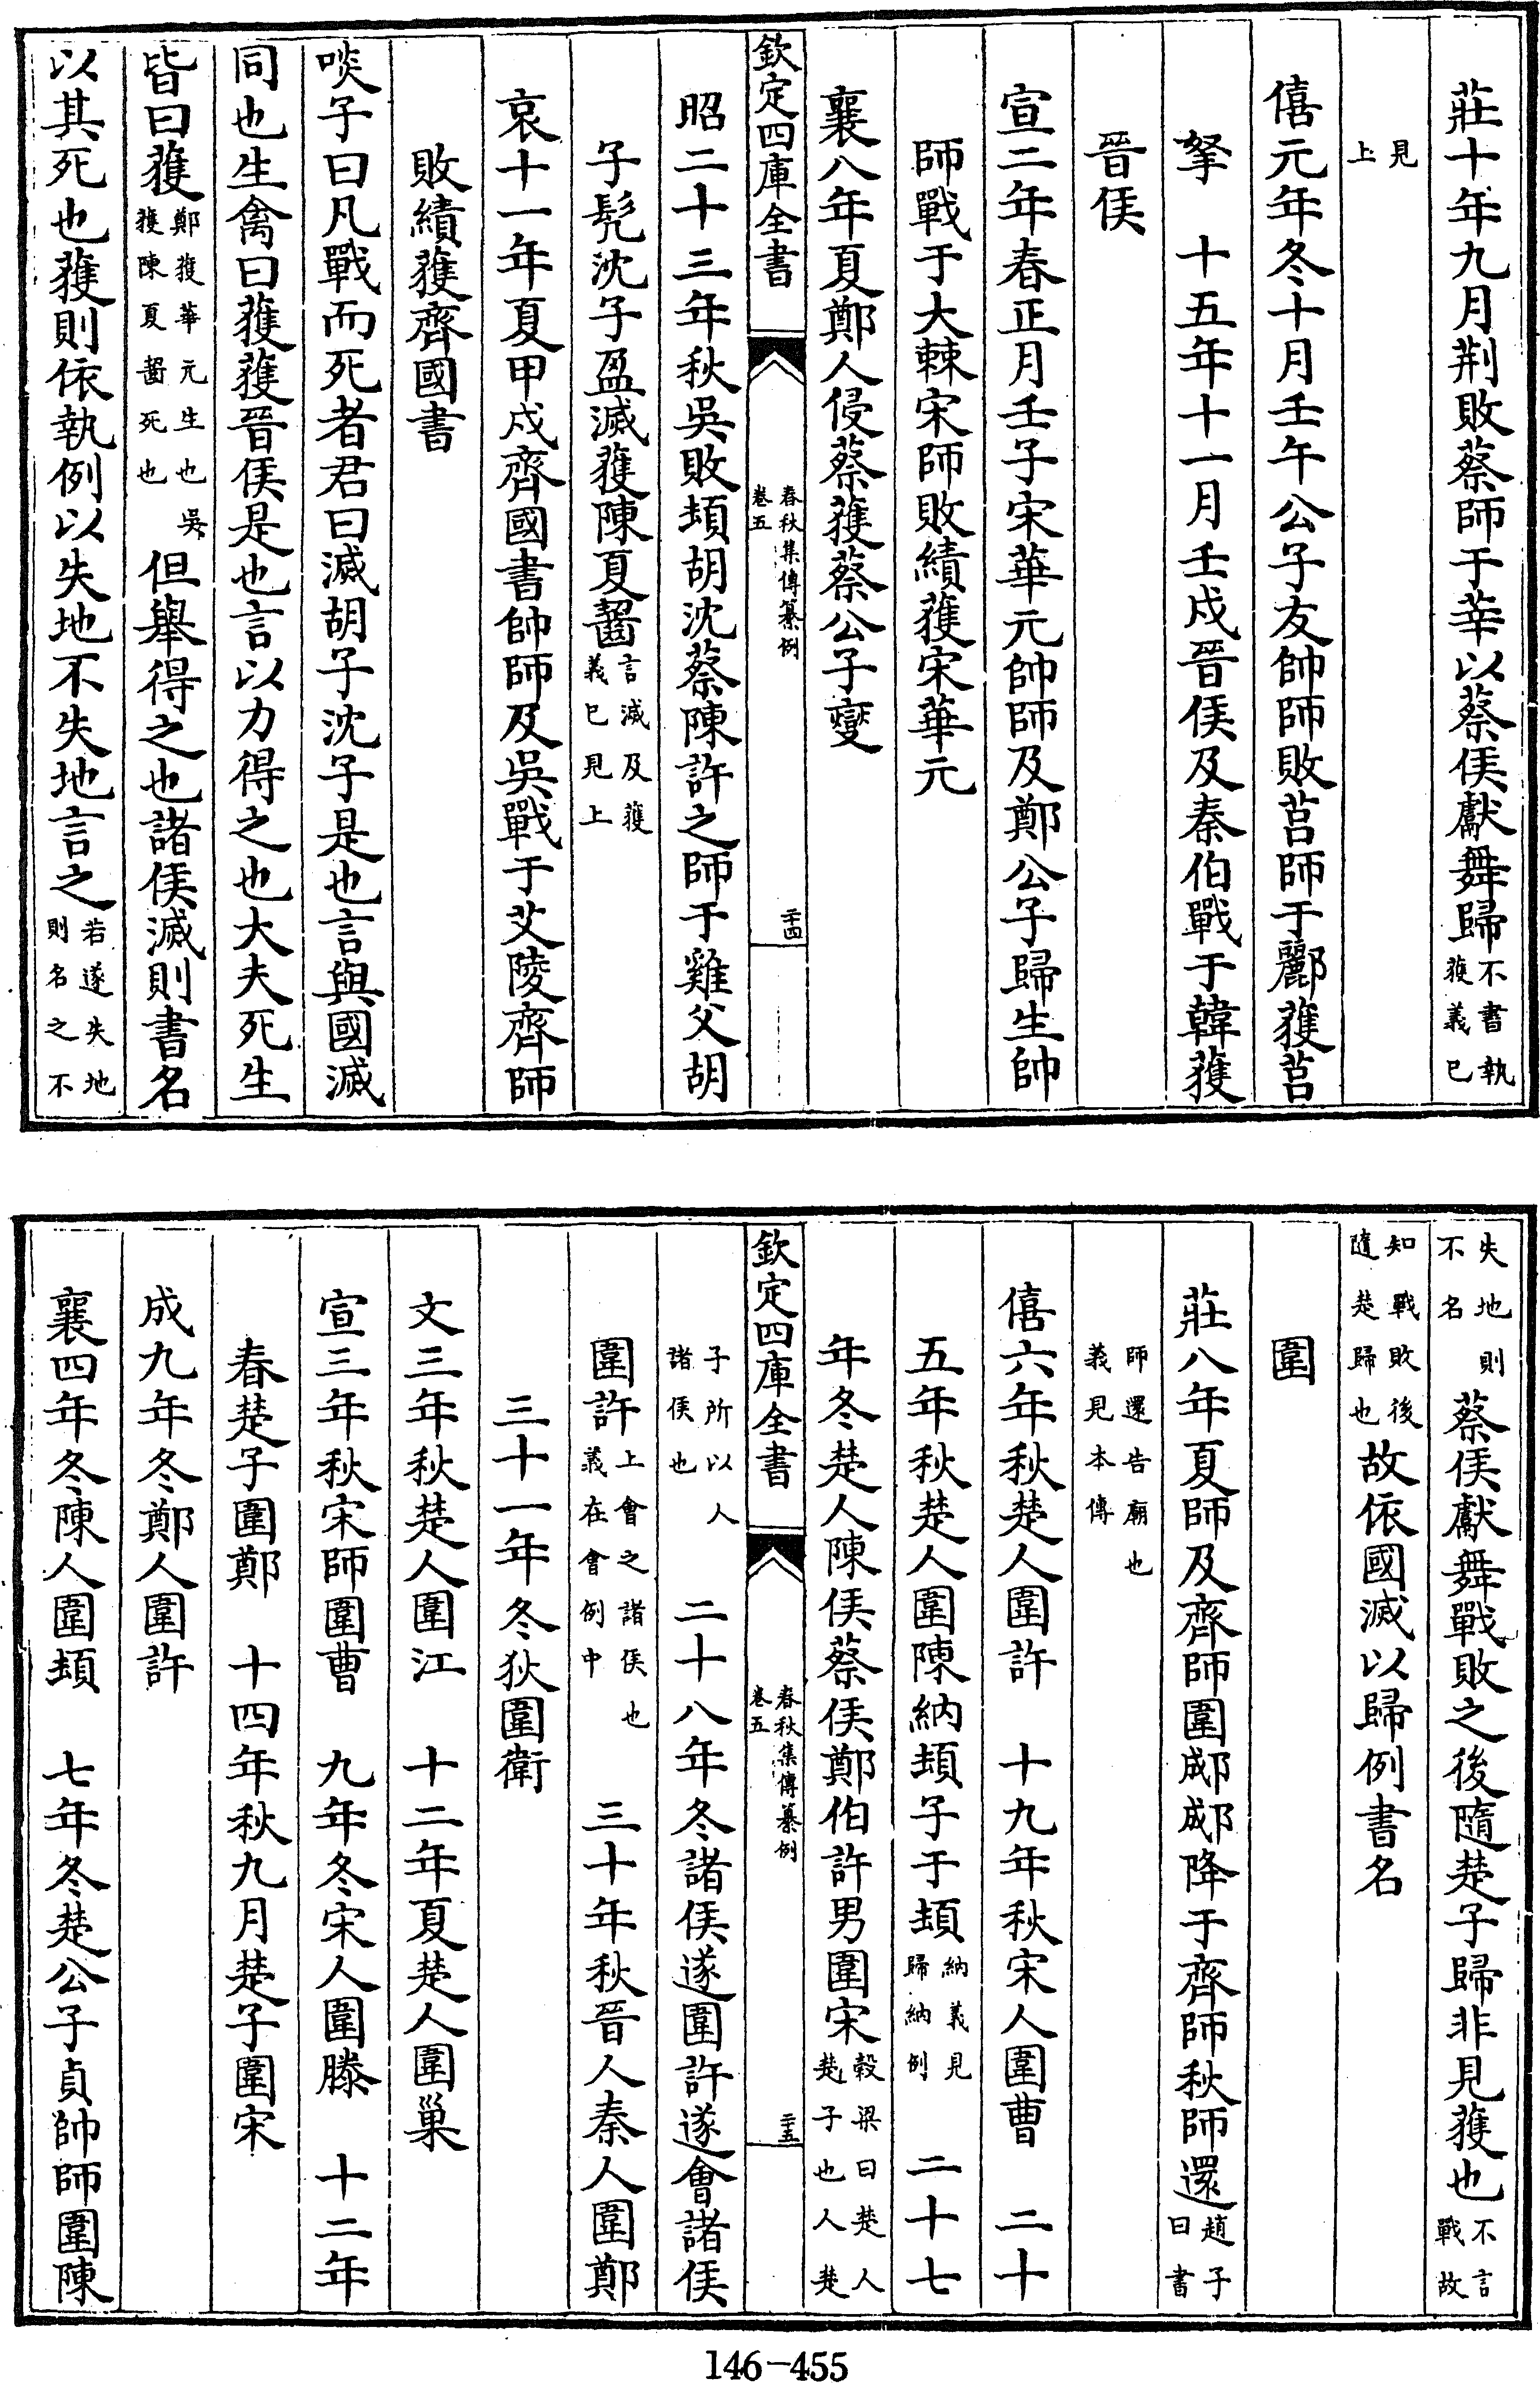 莊十年九月荆敗蔡師于莘以蔡侯獻舞歸不書執獲義已
見上
僖元年冬十月壬午公子友帥師敗莒師于酈獲莒
挐　十五年十一月壬戌晉侯及秦伯戰于韓獲
晉侯
宣二年春正月壬子宋華元帥師及鄭公子歸生帥
師戰于大棘宋師敗績獲宋華元
襄八年夏鄭人侵蔡獲蔡公子燮
欽定四庫全書　春秋集傳纂例卷五　二十四
昭二十三年秋吳敗頓胡沈蔡陳許之師于雞父胡
子髠沈子盈滅獲陳夏齧言滅及獲義已見上
哀十一年夏甲戌齊國書帥師及吳戰于艾陵齊師
敗績獲齊國書
啖子曰凡戰而死者君曰滅胡子沈子是也言與國滅
同也生禽曰獲獲晉侯是也言以力得之也大夫死生
皆曰獲鄭獲華元生也吳獲陳夏齧死也但舉得之也諸侯滅則書名
以其死也獲則依執例以失地不失地言之若遂失地則名之不
失地則不名蔡侯獻舞戰敗之後隨楚子歸非見獲也不言戰故
知戰敗後隨楚歸也故依國滅以歸例書名
圍
莊八年夏師及齊師圍郕郕降于齊師秋師還趙子曰書
師還告廟也義見本傳
僖六年秋楚人圍許　十九年秋宋人圍曹　二十
五年秋楚人圍陳納頓子于頓納義見歸納例　二十七
年冬楚人陳侯蔡侯鄭伯許男圍宋穀梁曰楚人楚子也人楚
欽定四庫全書　春秋集傳纂例卷五　二十五
子所以人諸侯也　二十八年冬諸侯遂圍許遂會諸侯
圍許上會之諸侯也義在會例中　三十年秋晉人秦人圍鄭
三十一年冬狄圍衛
文三年秋楚人圍江　十二年夏楚人圍巢
宣三年秋宋師圍曹　九年冬宋人圍滕　十二年
春楚子圍鄭　十四年秋九月楚子圍宋
成九年冬鄭人圍許
襄四年冬陳人圍頓　七年冬楚公子貞帥師圍陳
146-455